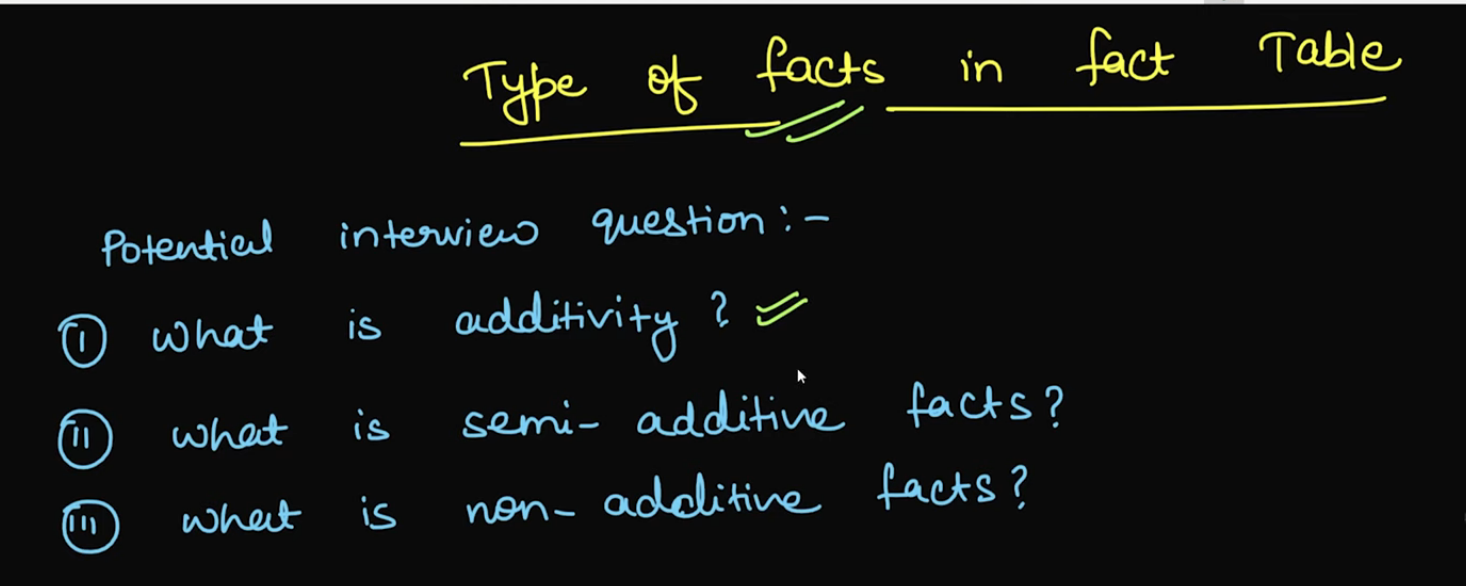 Type of facts in fact Table
Potential interview question:-
(I) What is additivity?
(II) what is semi-additive facts?
(III) what is non-additive facts?